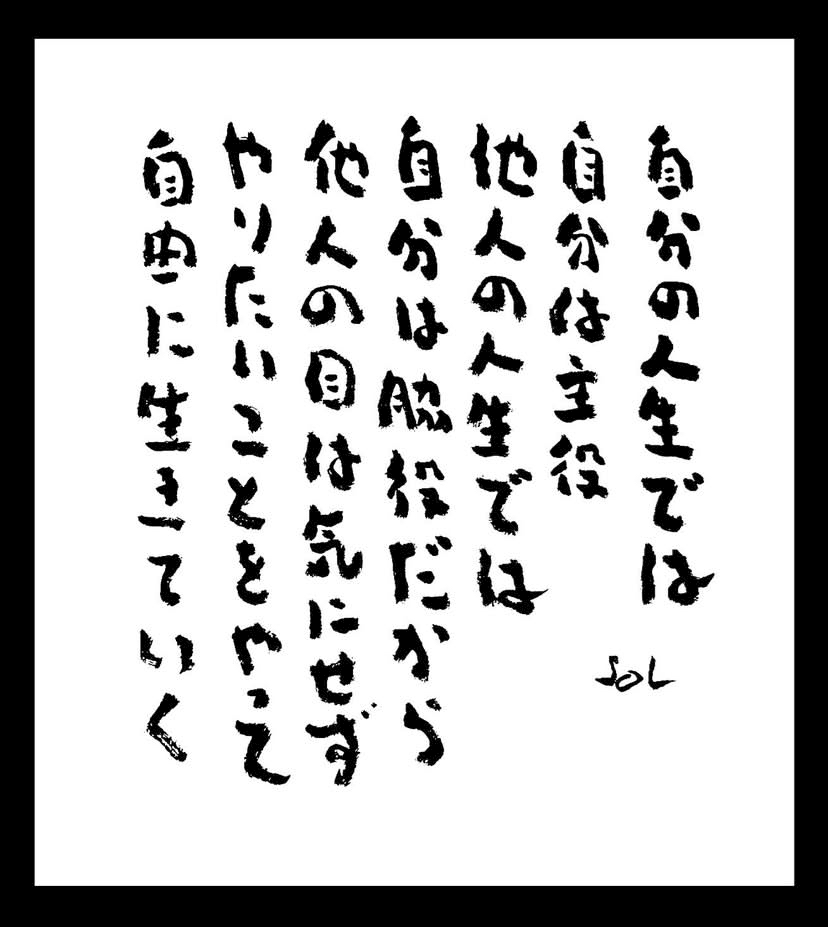 自分の人生では
自分は主役
他人の人生では
自分は脇役だから
他人の目は気にせず
やりたいことをやって
自由に生きていく
SOL